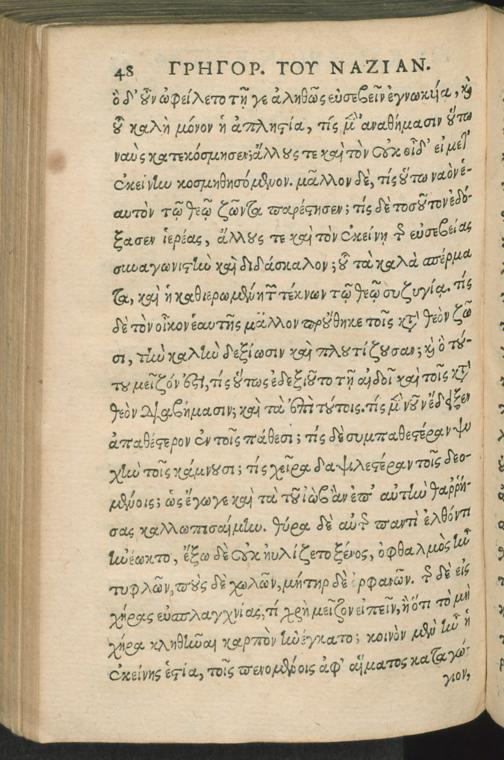 48 ΓΡΗΓΟΡ. ΤΟΥ ΝΑΖΙΑΝ.
ὃ δ' οὖν ὠφείλετο τῇ γε ἀληθῶς εὐσεβεῖν ἐγνωκυίᾳ, καὶ
οὗ καλὴ μόνον ἡ ἀπληστία, τίς μὲν ἀναθήμασιν οὕτω
ναοὺς κατεκόσμησεν; ἄλλους τε καὶ τὸν οὐκ οἶδ' εἰ μετ'
ἐκείνην κοσμηθησόμενον. μᾶλλον δὲ, τίς οὕτω ναὸν ἑ-
αυτὸν τῷ θεῷ ζῶντα παρέστησεν; τίς δὲ τοσοῦτον ἐδό-
ξασεν ἱερέας, ἄλλους τε καὶ τὸν ἐκείνῃ τῆς εὐσεβείας
συναγωνιστὴν καὶ διδάσκαλον; οὗ τὰ καλὰ σπέρμα
τα, καὶ ἡ καθιερωμένη τῶν τέκνων τῷ θεῷ συζυγία. τίς
δὲ τὸν οἶκον ἑαυτῆς μᾶλλον προύθηκε τοῖς κατὰ θεὸν ζῶ
σι, τὴν καλὴν δεξίωσιν καὶ πλουτίζουσαν; καὶ ὃ τού-
του μεῖζόν ἐστι, τίς οὕτως ἐδεξιοῦτο τῇ αἰδοῖ καὶ τοῖς κατὰ
θεὸν διαβήμασιν; καὶ τὰ ἐπὶ τούτοις. τίς μὲν νοῦν ἔδειξεν
ἀπαθέστερον ἐν τοῖς πάθεσι; τίς δὲ συμπαθεστέραν ψυ
χὴν τοῖς κάμνουσι; τίς χεῖρα δαψιλεστέραν τοῖς δεο-
μένοις; ὡς ἔγωγε καὶ τὰ τοῦ ἰὼβ ἂν ἐπ' αὐτὴν θαρρή-
σας καλλωπισαίμην. θύρα δὲ αὐτῆς παντὶ ἐλθόντι
ἠνέωκτο, ἔξω δὲ οὐκ ηὐλίζετο ξένος, ὀφθαλμὸς ἦν
τυφλῶν, ποὺς δὲ χωλῶν, μήτηρ δὲ ὀρφανῶν. τῆς δὲ εἰς
χήρας εὐσπλαγχνίας, τί χρὴ μεῖζον εἰπεῖν, ἢ ὅτι τὸ μὴ
χήρα κληθῆναι καρπὸν ἠνέγκατο; κοινὸν μὲν ἦν ἡ
ἐκείνης ἑστία, τοῖς πενομένοις ἀφ' αἵματος καταγώ-
γιον,